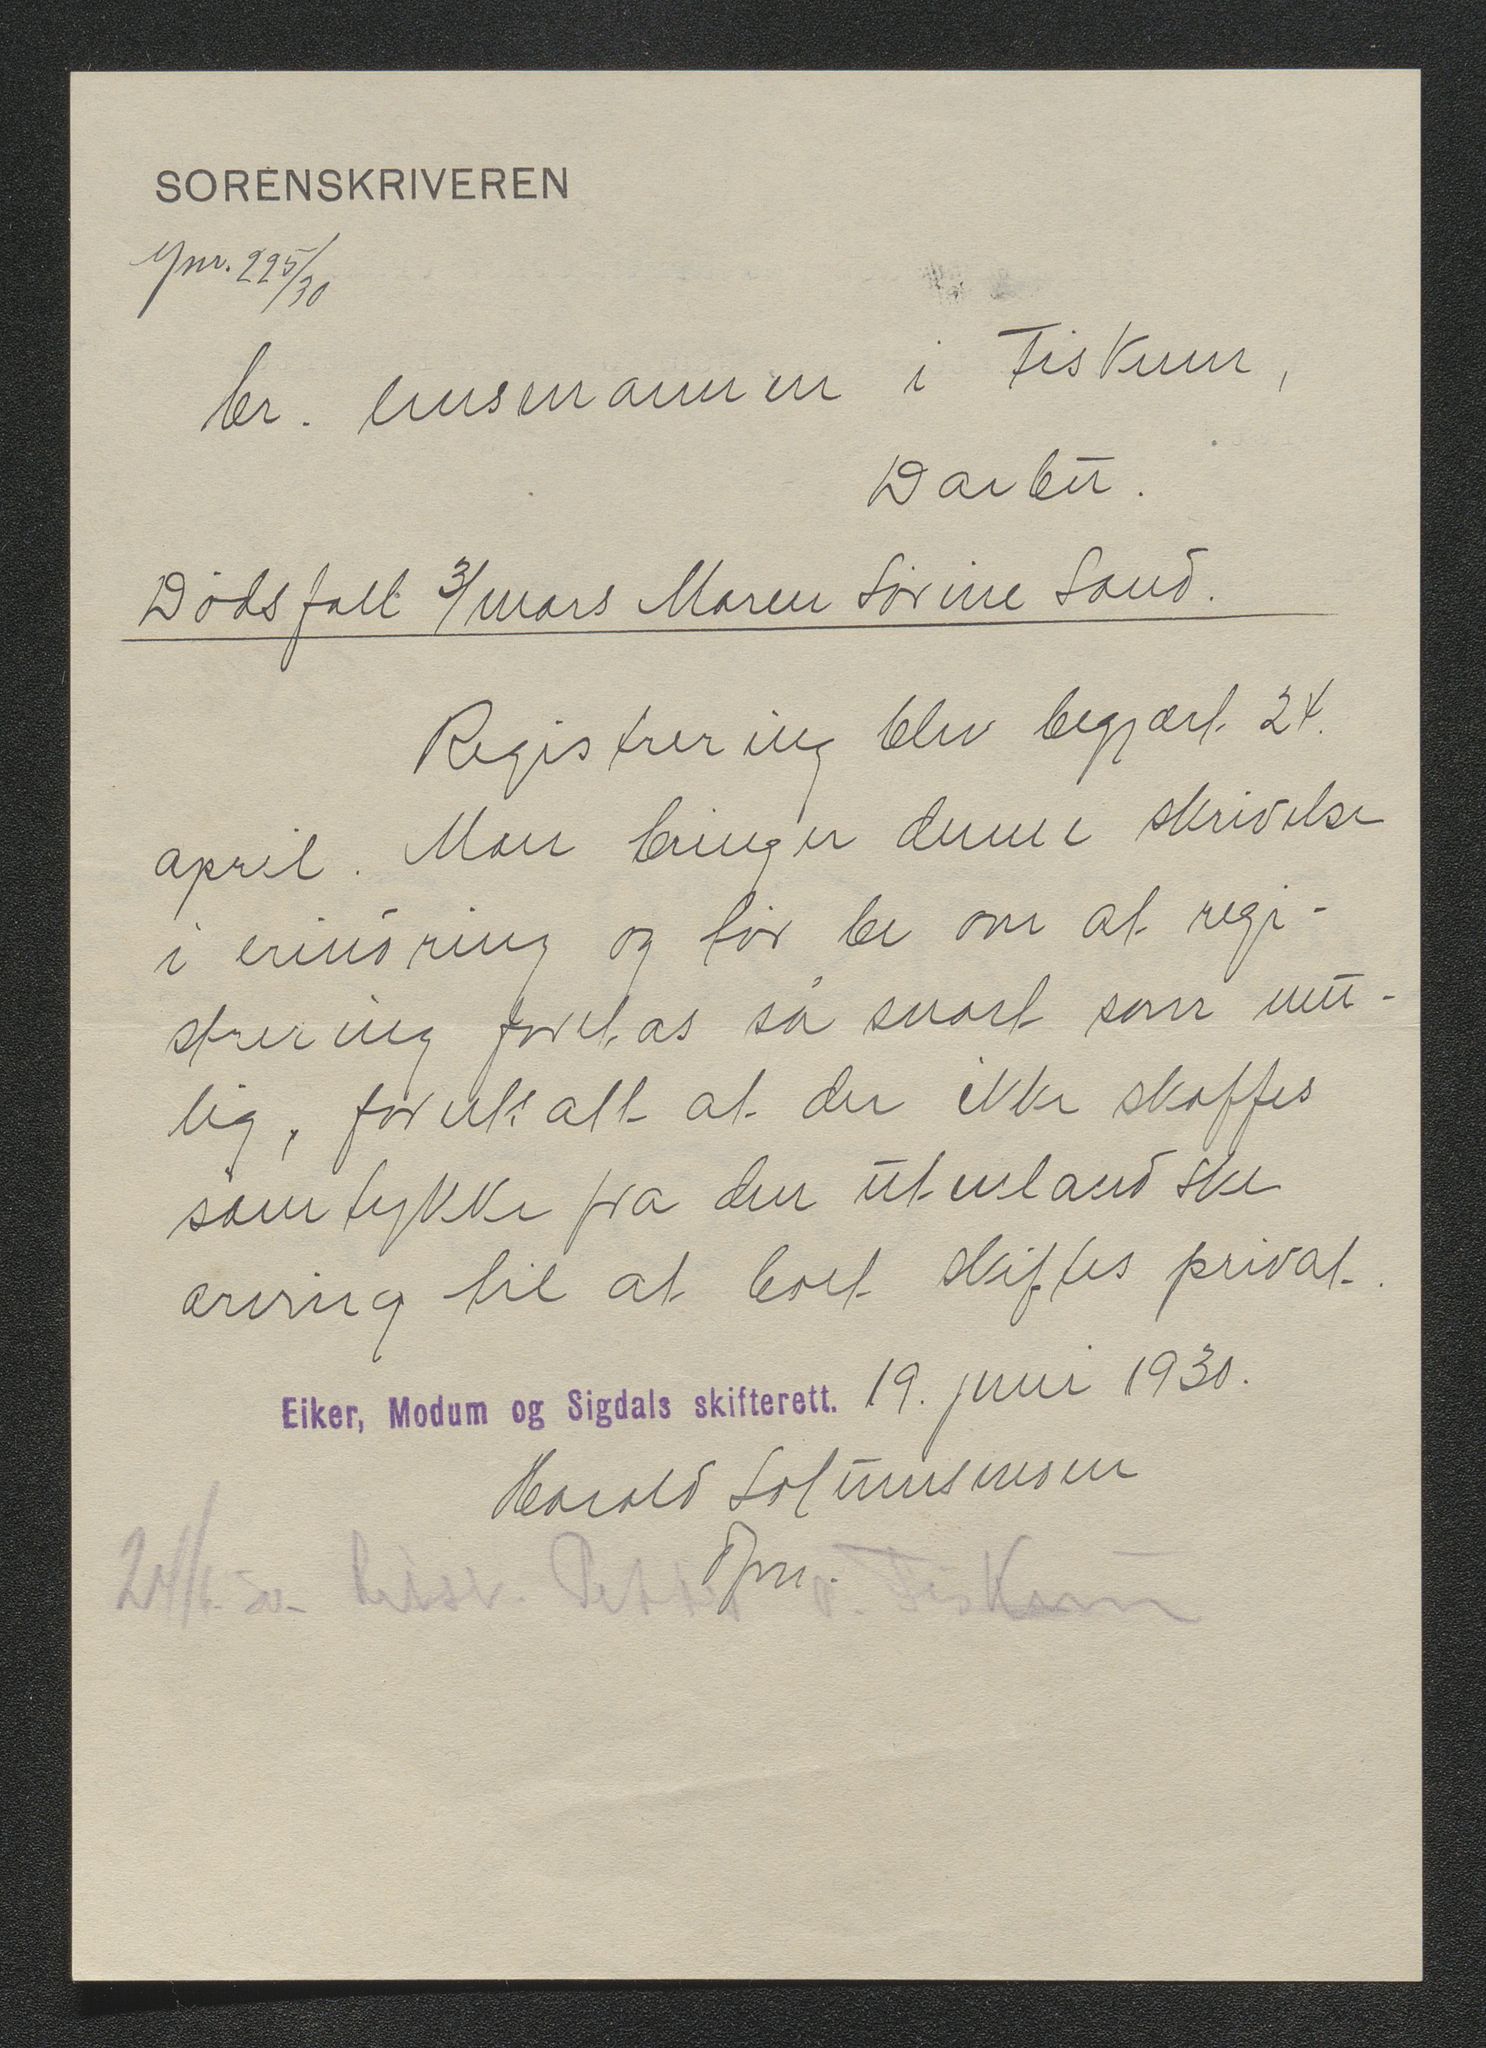 SORENSKRIVEREN
Jnr. 225/30
hr. lensmannen i Fiskum,
Darbu.
Dødsfall 3/mars Maren Sørine Sand.
Registrering blev begjært 24.
april. Man bringer denne skrivelse
i erindring og tør be om at regi-
strering foretas så snart som mu-
lig, forutsatt at der ikke skaffes
samtykke fra den utenlandske
arving til at boet skiftes privat.
Eiker, Modum og Sigdals skifterett. 19. juni 1930.
Harald
fm.
Fiskum